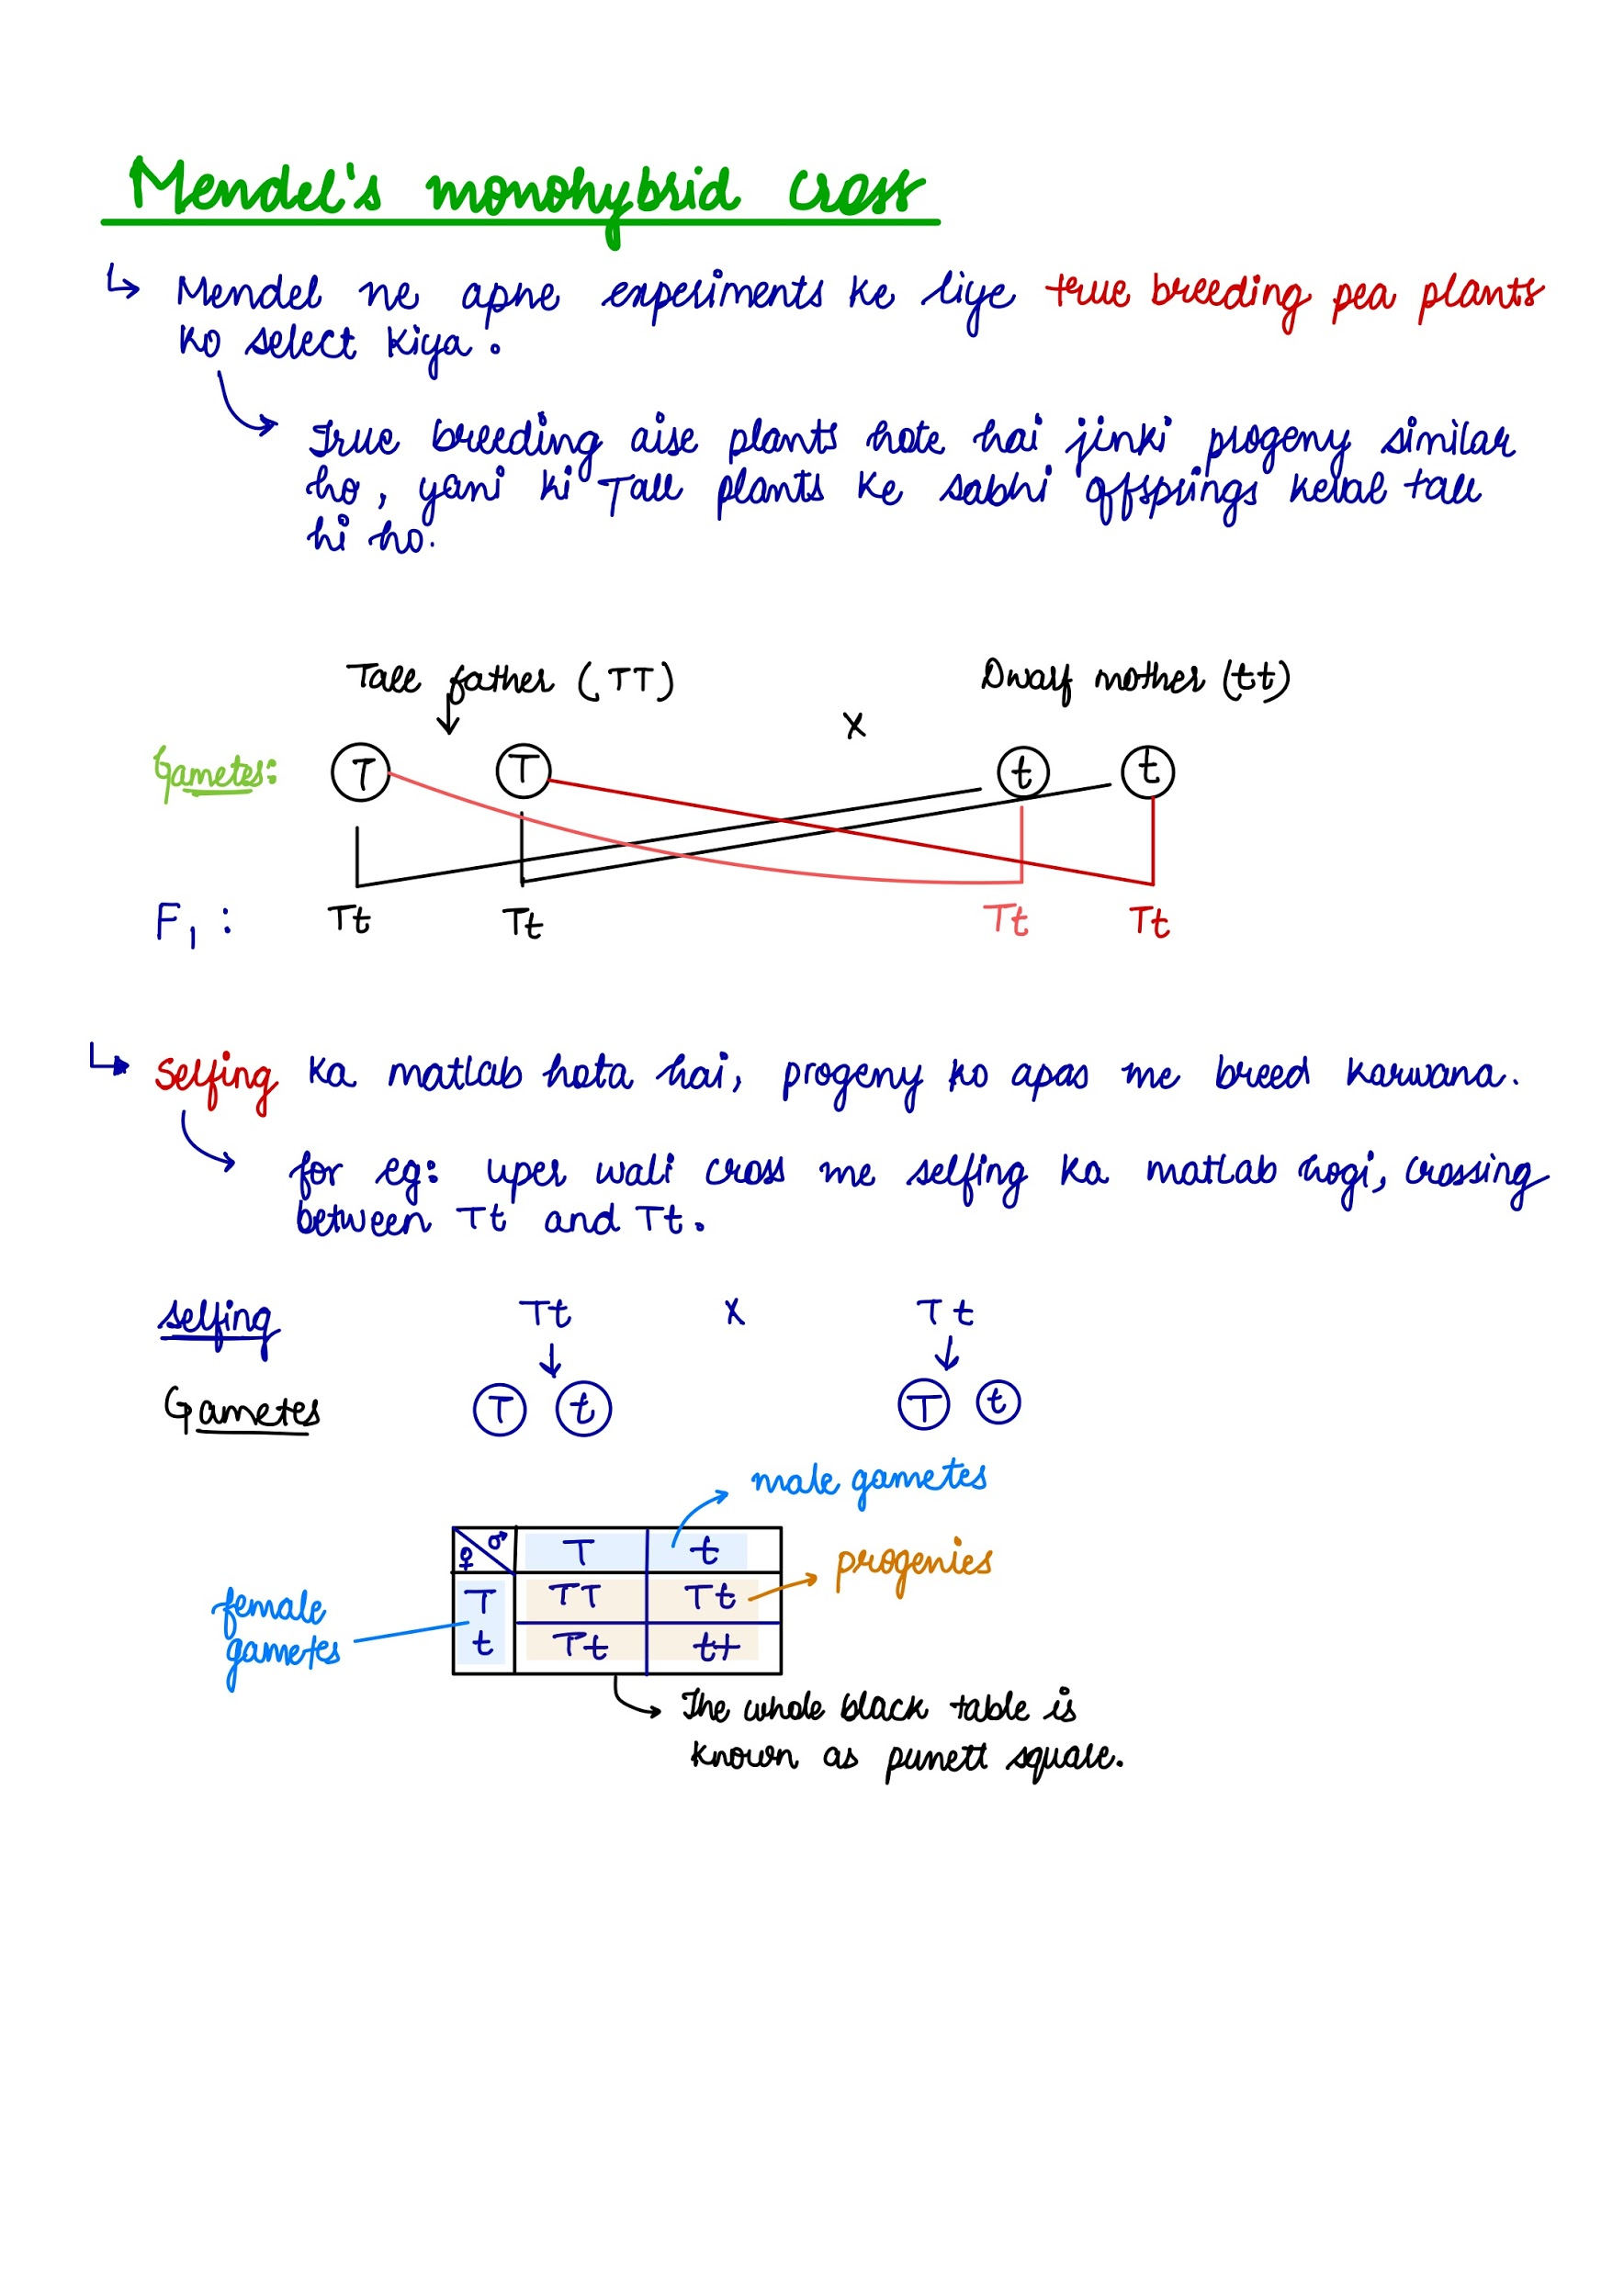 Mendel's monohybrid cross
↳ Mendel ne apne experiments ke liye true breeding pea plants
ko select kiya.
True breeding aise plants hote hai jinki progeny similar
ho, yani ki Tall plants ke sabhi offsprings keval tall
hi ho.
Tall father (TT) x Dwarf mother (tt)
Gametes: T T t t
F1: Tt Tt Tt Tt
↳ Selfing ka matlab hota hai, progeny ko apas me breed karwana.
for eg: uper wali cross me selfing ka matlab hogi, crossing
between Tt and Tt.
selfing Tt x Tt
Gametes T t T t
male gametes
♀ ♂ T t
progenies
T TT Tt
female
gametes
t Tt tt
The whole black table is
known as punett square.